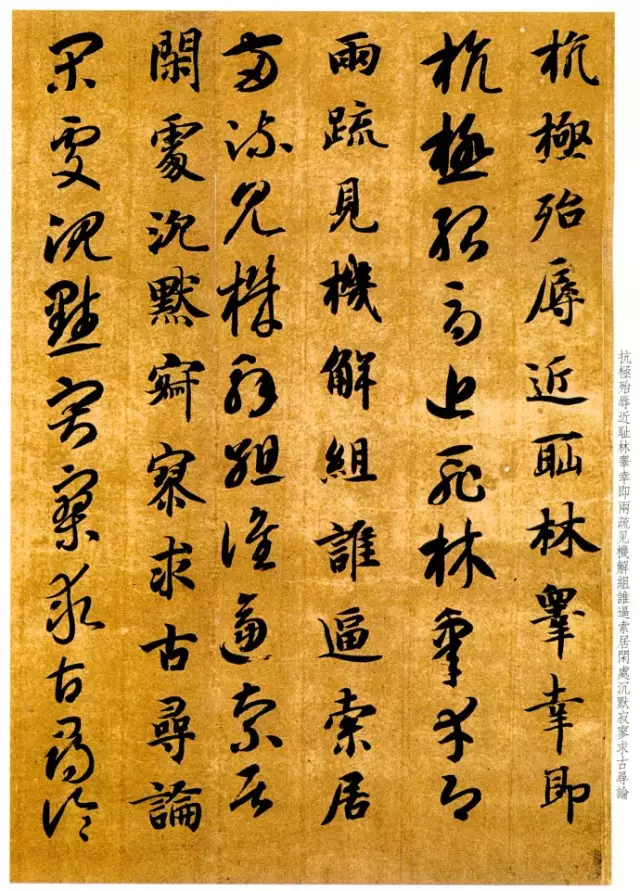 抗極殆辱近耻林睾幸即兩疏见機解組誰逼索居閑處沉默寂寥求古尋論
杭極殆辱近耻林睾幸即
杭極殆辱近耻林睾幸即
兩疏見機解組誰逼索居
兩疏見機解組誰逼索居
閑處沉默寂寥求古尋論
閑處沉默寂寥求古尋論